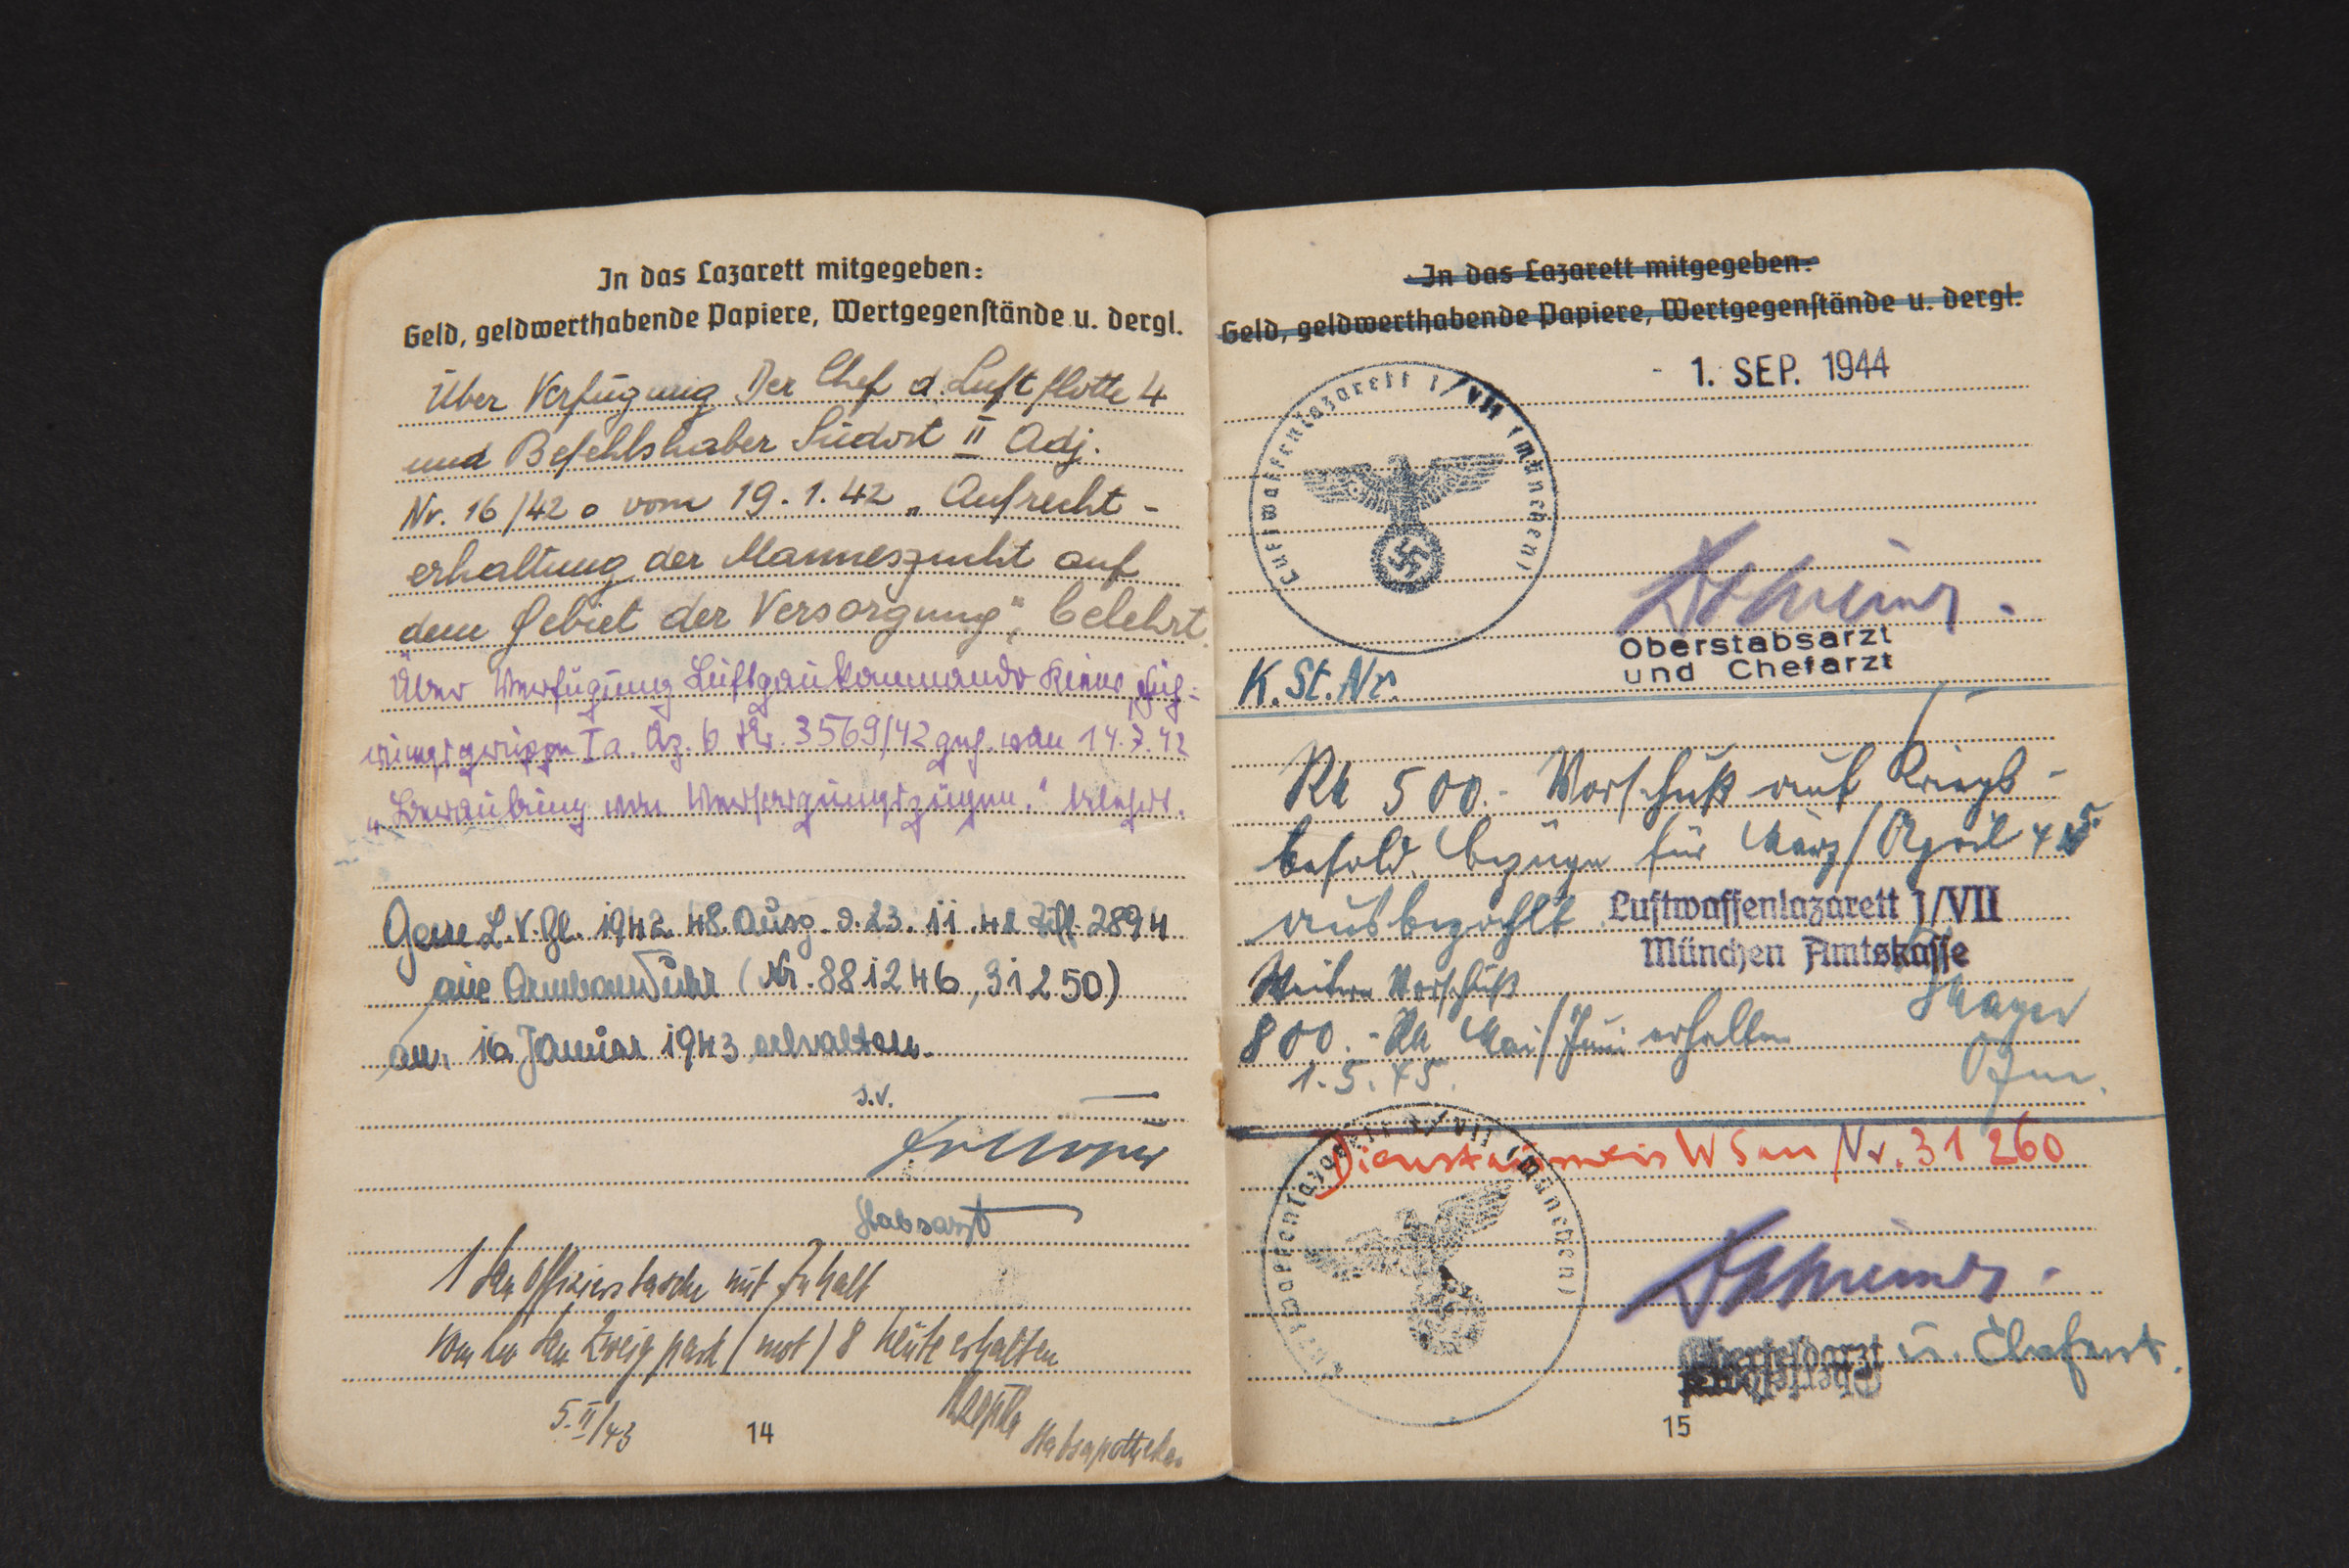 In das Lazarett mitgegeben:
Geld, geldwerthabende Papiere, Wertgegenstände u. dergl.
Über Verfügung Der Chef d. Luftflotte 4
und Befehlshaber Südost II Adj.
Nr. 16/42 o vom 19.1.42 „Aufrecht-
erhaltung der Manneszucht auf
dem Gebiet der Versorgung", belehrt
Über Verfügung Luftgaukommando Kiew, Füh-
rungsgruppe Ia. Az. 6 Nr. 3569/42 geh. vom 14.7.42
„Beraubung von Versorgungszügen." belehrt.
L.V.Bl. 1942 48. Ausg. v. 23.11.42 Ziff. 2894
eine Armbanduhr (Nr. 881246, 31250)
am 16. Januar 1943 erhalten.
Stabsarzt
1 San Offizierstasche mit Inhalt
vom Lw San Zweigpark (mot) 8 heute erhalten
5.II/43
Stabsapotheker
14
In das Lazarett mitgegeben:
Geld, geldwerthabende Papiere, Wertgegenstände u. dergl.
- 1. SEP. 1944
Luftwaffenlazarett 1/VII (München)
Oberstabsarzt
und Chefarzt
K.St.Nr.
RM 500.- Vorschuß auf Kriegs-
besold. bezüge für März/April 45.
ausbezahlt. Luftwaffenlazarett 1/VII
München Amtskasse
Weitere Vorschuß
800.- RM Mai/Juni erhalten
1.5.45.
Dienstausweis W San Nr. 31260
Luftwaffenlazarett 1/VII (München)
Oberfeldarzt u. Chefarzt.
15